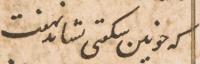 که خونین سکتی نشاید نهفت